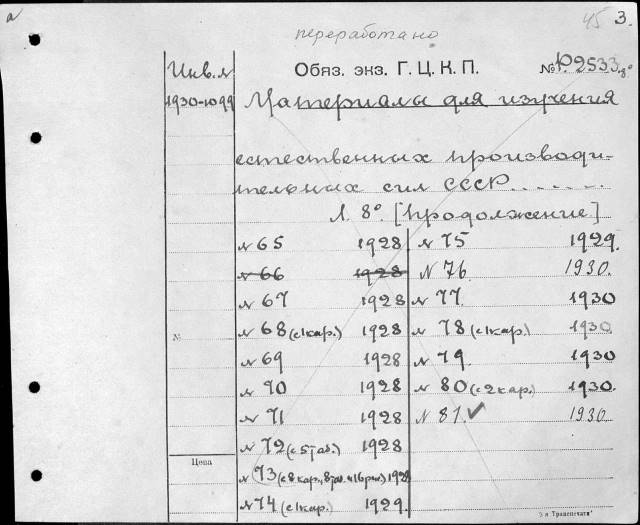 а 45 3.
переработано
Инв. № Обяз. экз. Г. Ц. К. П. № P2533 8°
1930-1099 Материалы для изучения
естественных производи-
тельных сил СССР.......
Л. 8° [продолжение]
№ 65 1928 № 75 1929.
№ 66 1928 № 76. 1930.
№ 67 1928 № 77. 1930
№ № 68 (с 1 кар.) 1928 № 78 (с 1 кар.) 1930
№ 69 1928 № 79. 1930
№ 70 1928 № 80 (с 2 кар.) 1930.
№ 71 1928 № 81. ✓ 1930.
№ 72 (с 5 таб.) 1928
Цена
№ 73 (с 8 кар., 8 таб. и 16 рис.) 1928
№ 74 (с 1 кар.) 1929.
3-я Транспечати